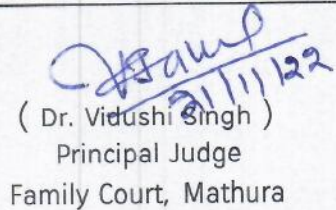 21/11/22
( Dr. Vidushi Singh )
Principal Judge
Family Court, Mathura